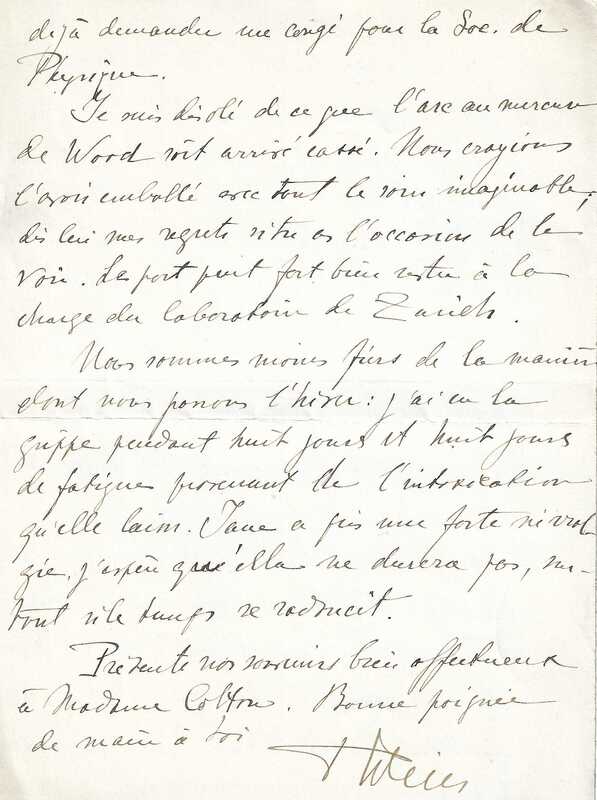 déjà demander un congé pour la Soc. de
Physique.
Je suis désolé de ce que l'arc au mercure
de Wood soit arrivé cassé. Nous croyions
l'avoir emballé avec tout le soin imaginable;
dis lui mes regrets si tu as l'occasion de le
voir. Le port peut fort bien rester à la
charge du laboratoire de Zurich.
Nous sommes moins fiers de la manière
dont nous passons l'hiver: j'ai eu la
grippe pendant huit jours et huit jours
de fatigue provenant de l'intoxication
qu'elle laisse. Jane a pris une forte névral
gie, j'espère qu'elle ne durera pas, sur-
tout si le temps se radoucit.
Présente nos souvenirs bien affectueux
à Madame Cotton. Bonne poignée
de main à toi
P Weiss